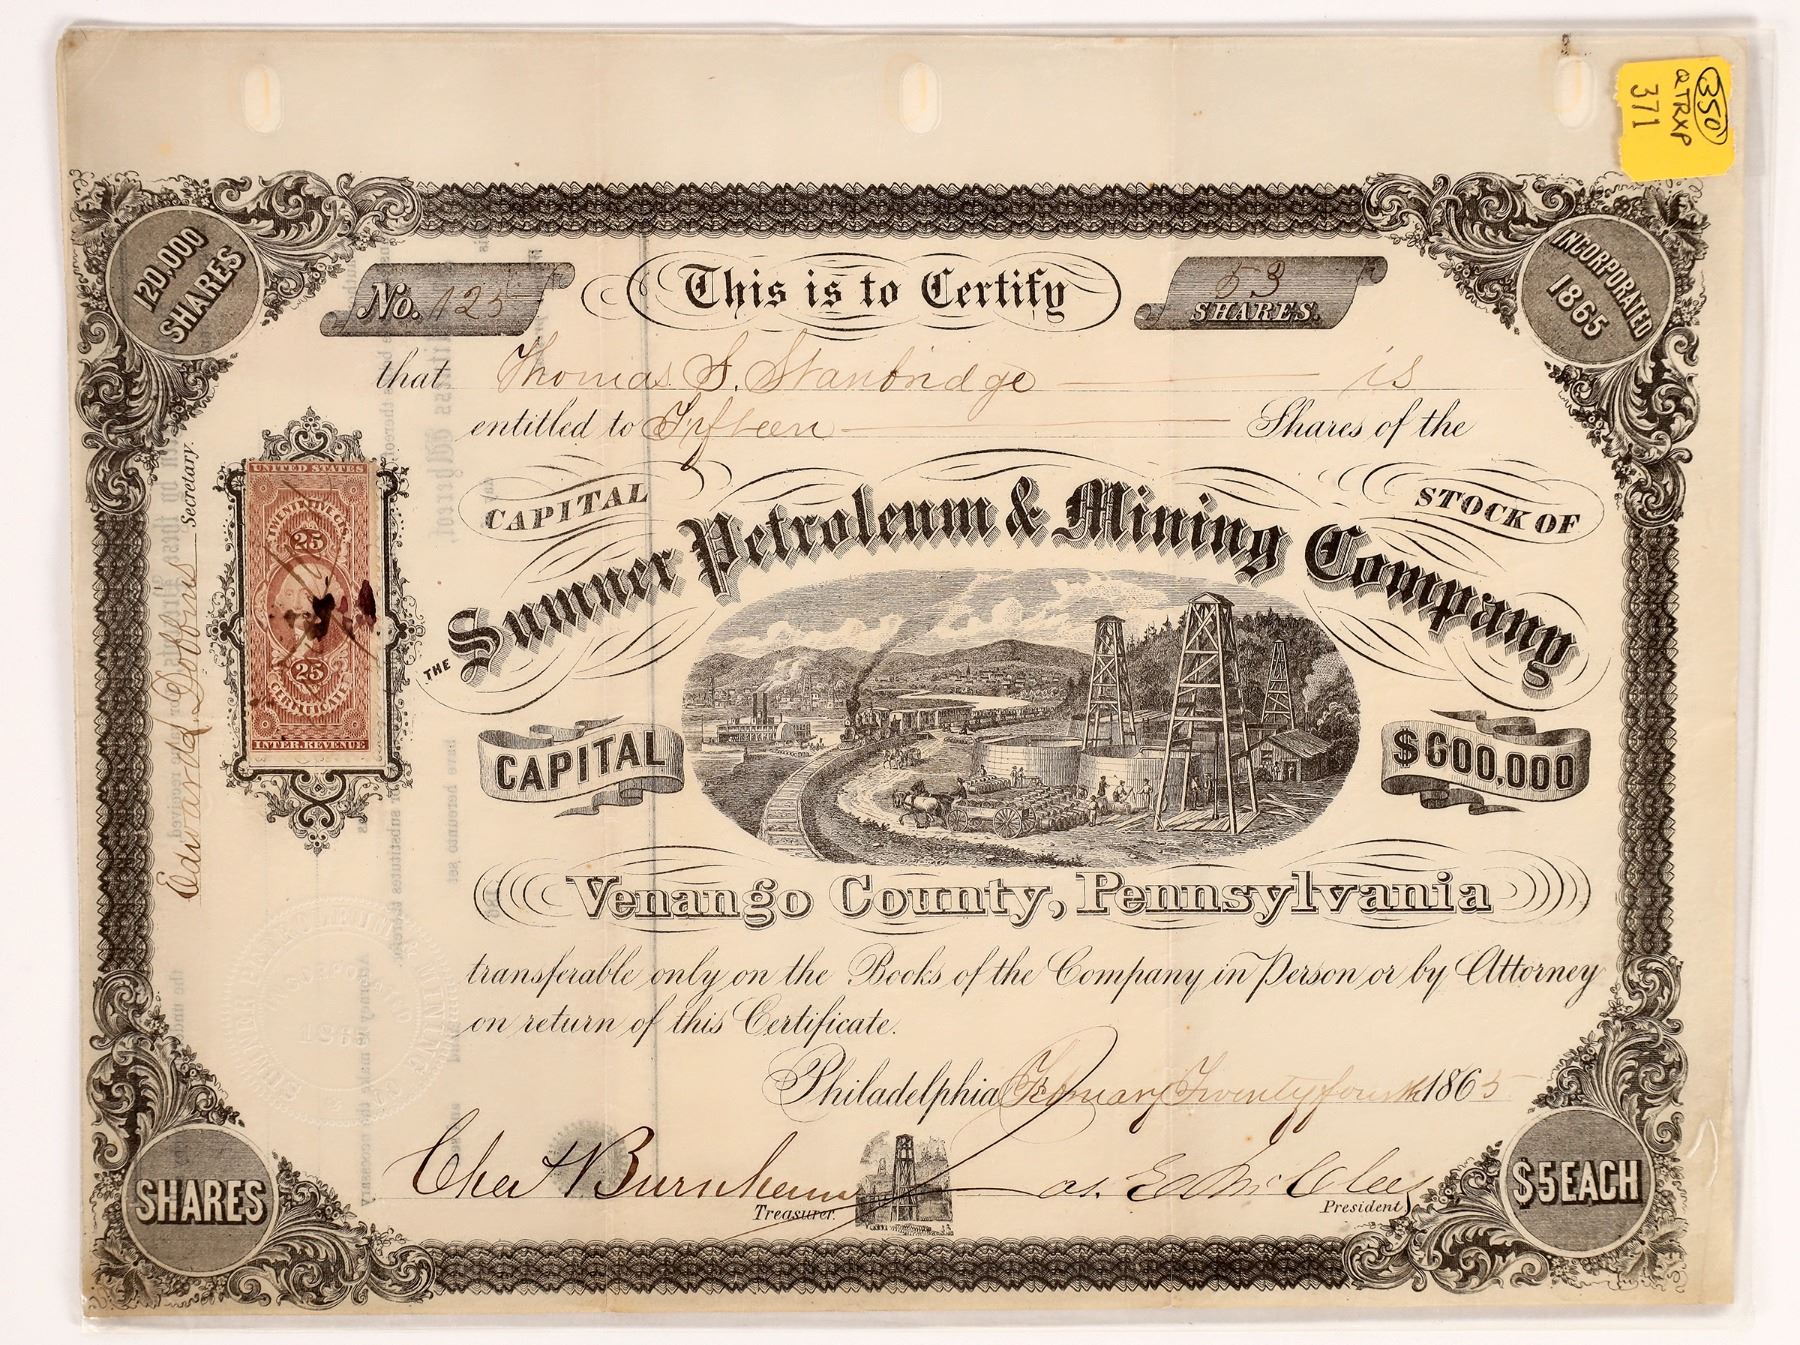 350
QTRXP
371
120,000
SHARES
INCORPORATED
1865
No. 125
This is to Certify
53
SHARES.
that Thomas S. Stanbridge is
entitled to Fifteen Shares of the
CAPITAL
STOCK OF
THE Sumner Petroleum & Mining Company
CAPITAL
$600,000
Venango County, Pennsylvania
transferable only on the Books of the Company in Person or by Attorney
on return of this Certificate.
Philadelphia February Twenty fourth 1865
Burnham
Treasurer.
President
SHARES
$5 EACH
Edward Dobbins Secretary.
UNITED STATES
TWENTY FIVE CTS.
25
25
CERTIFICATE
INTER. REVENUE
SUMNER PETROLEUM & MINING
INCORPORATED
1865